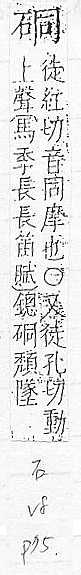 硐
徒紅切音同摩也〇又徒孔切動
上聲馬季長長笛賦鏓硐隤墜
石
v8
p95.